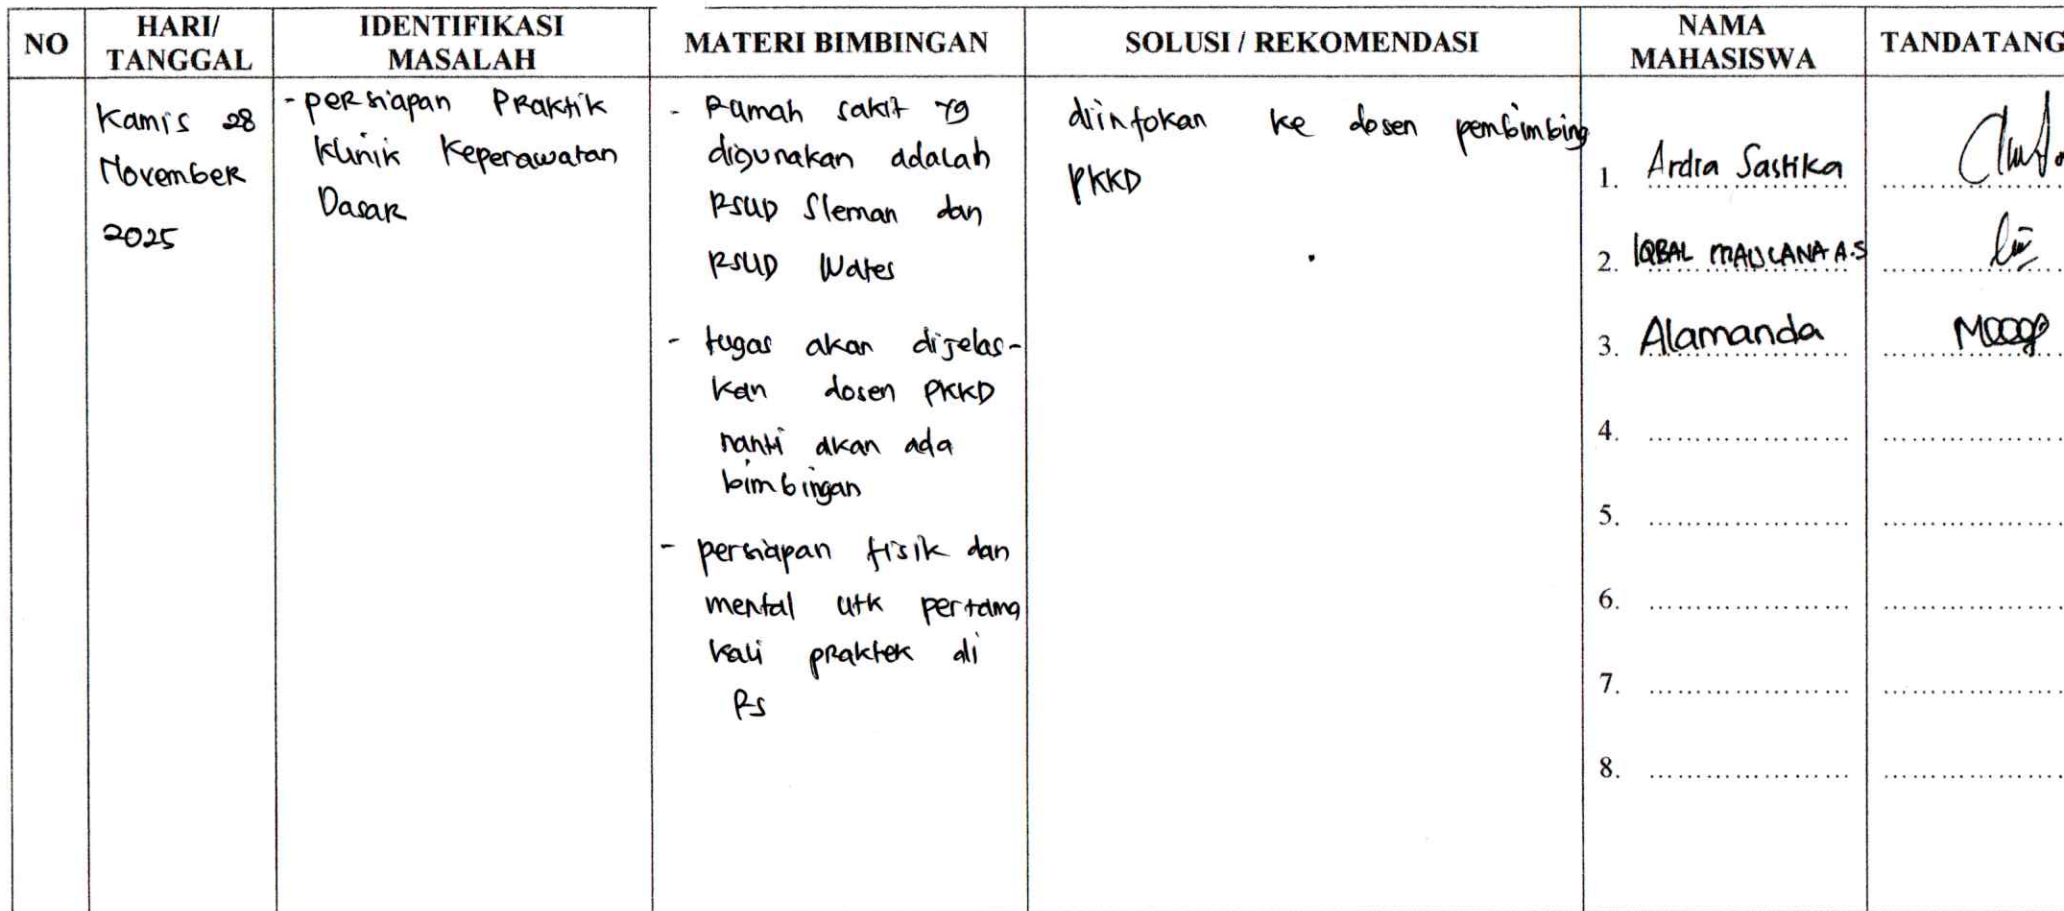 NO
HARI/
TANGGAL
IDENTIFIKASI
MASALAH
MATERI BIMBINGAN
SOLUSI / REKOMENDASI
NAMA
MAHASISWA
TANDATANG
Kamis 28
November
2025
- persiapan Praktik
Klinik Keperawatan
Dasar
- Rumah sakit yg
digunakan adalah
RSUD Sleman dan
RSUD Wates
- tugas akan dijelas-
kan dosen PKKD
nanti akan ada
bimbingan
- persiapan fisik dan
mental utk pertama
kali praktek di
RS
diinfokan ke dosen pembimbing
PKKD
1. Ardia Sastika
2. IQBAL MAULANA A.S
3. Alamanda
4.
5.
6.
7.
8.